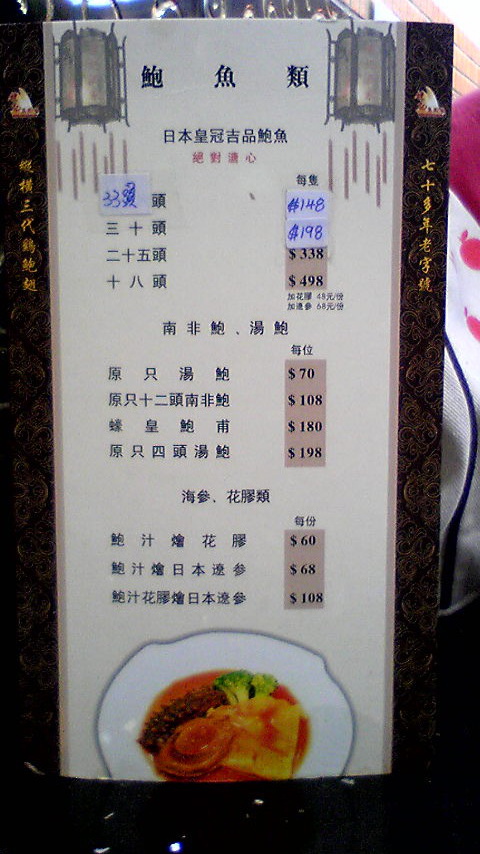 鮑魚類
日本皇冠吉品鮑魚
絕對溏心
每隻
33頭 頭 $148
三十頭 $198
二十五頭 $338
十八頭 $498
加花膠 48元/份
加遼參 68元/份
南非鮑、湯鮑
每位
原只湯鮑 $70
原只十二頭南非鮑 $108
蠔皇鮑甫 $180
原只四頭湯鮑 $198
海參、花膠類
每份
鮑汁燴花膠 $60
鮑汁燴日本遼參 $68
鮑汁花膠燴日本遼參 $108
縱橫三代鶴鮑翅
七十多年老字號